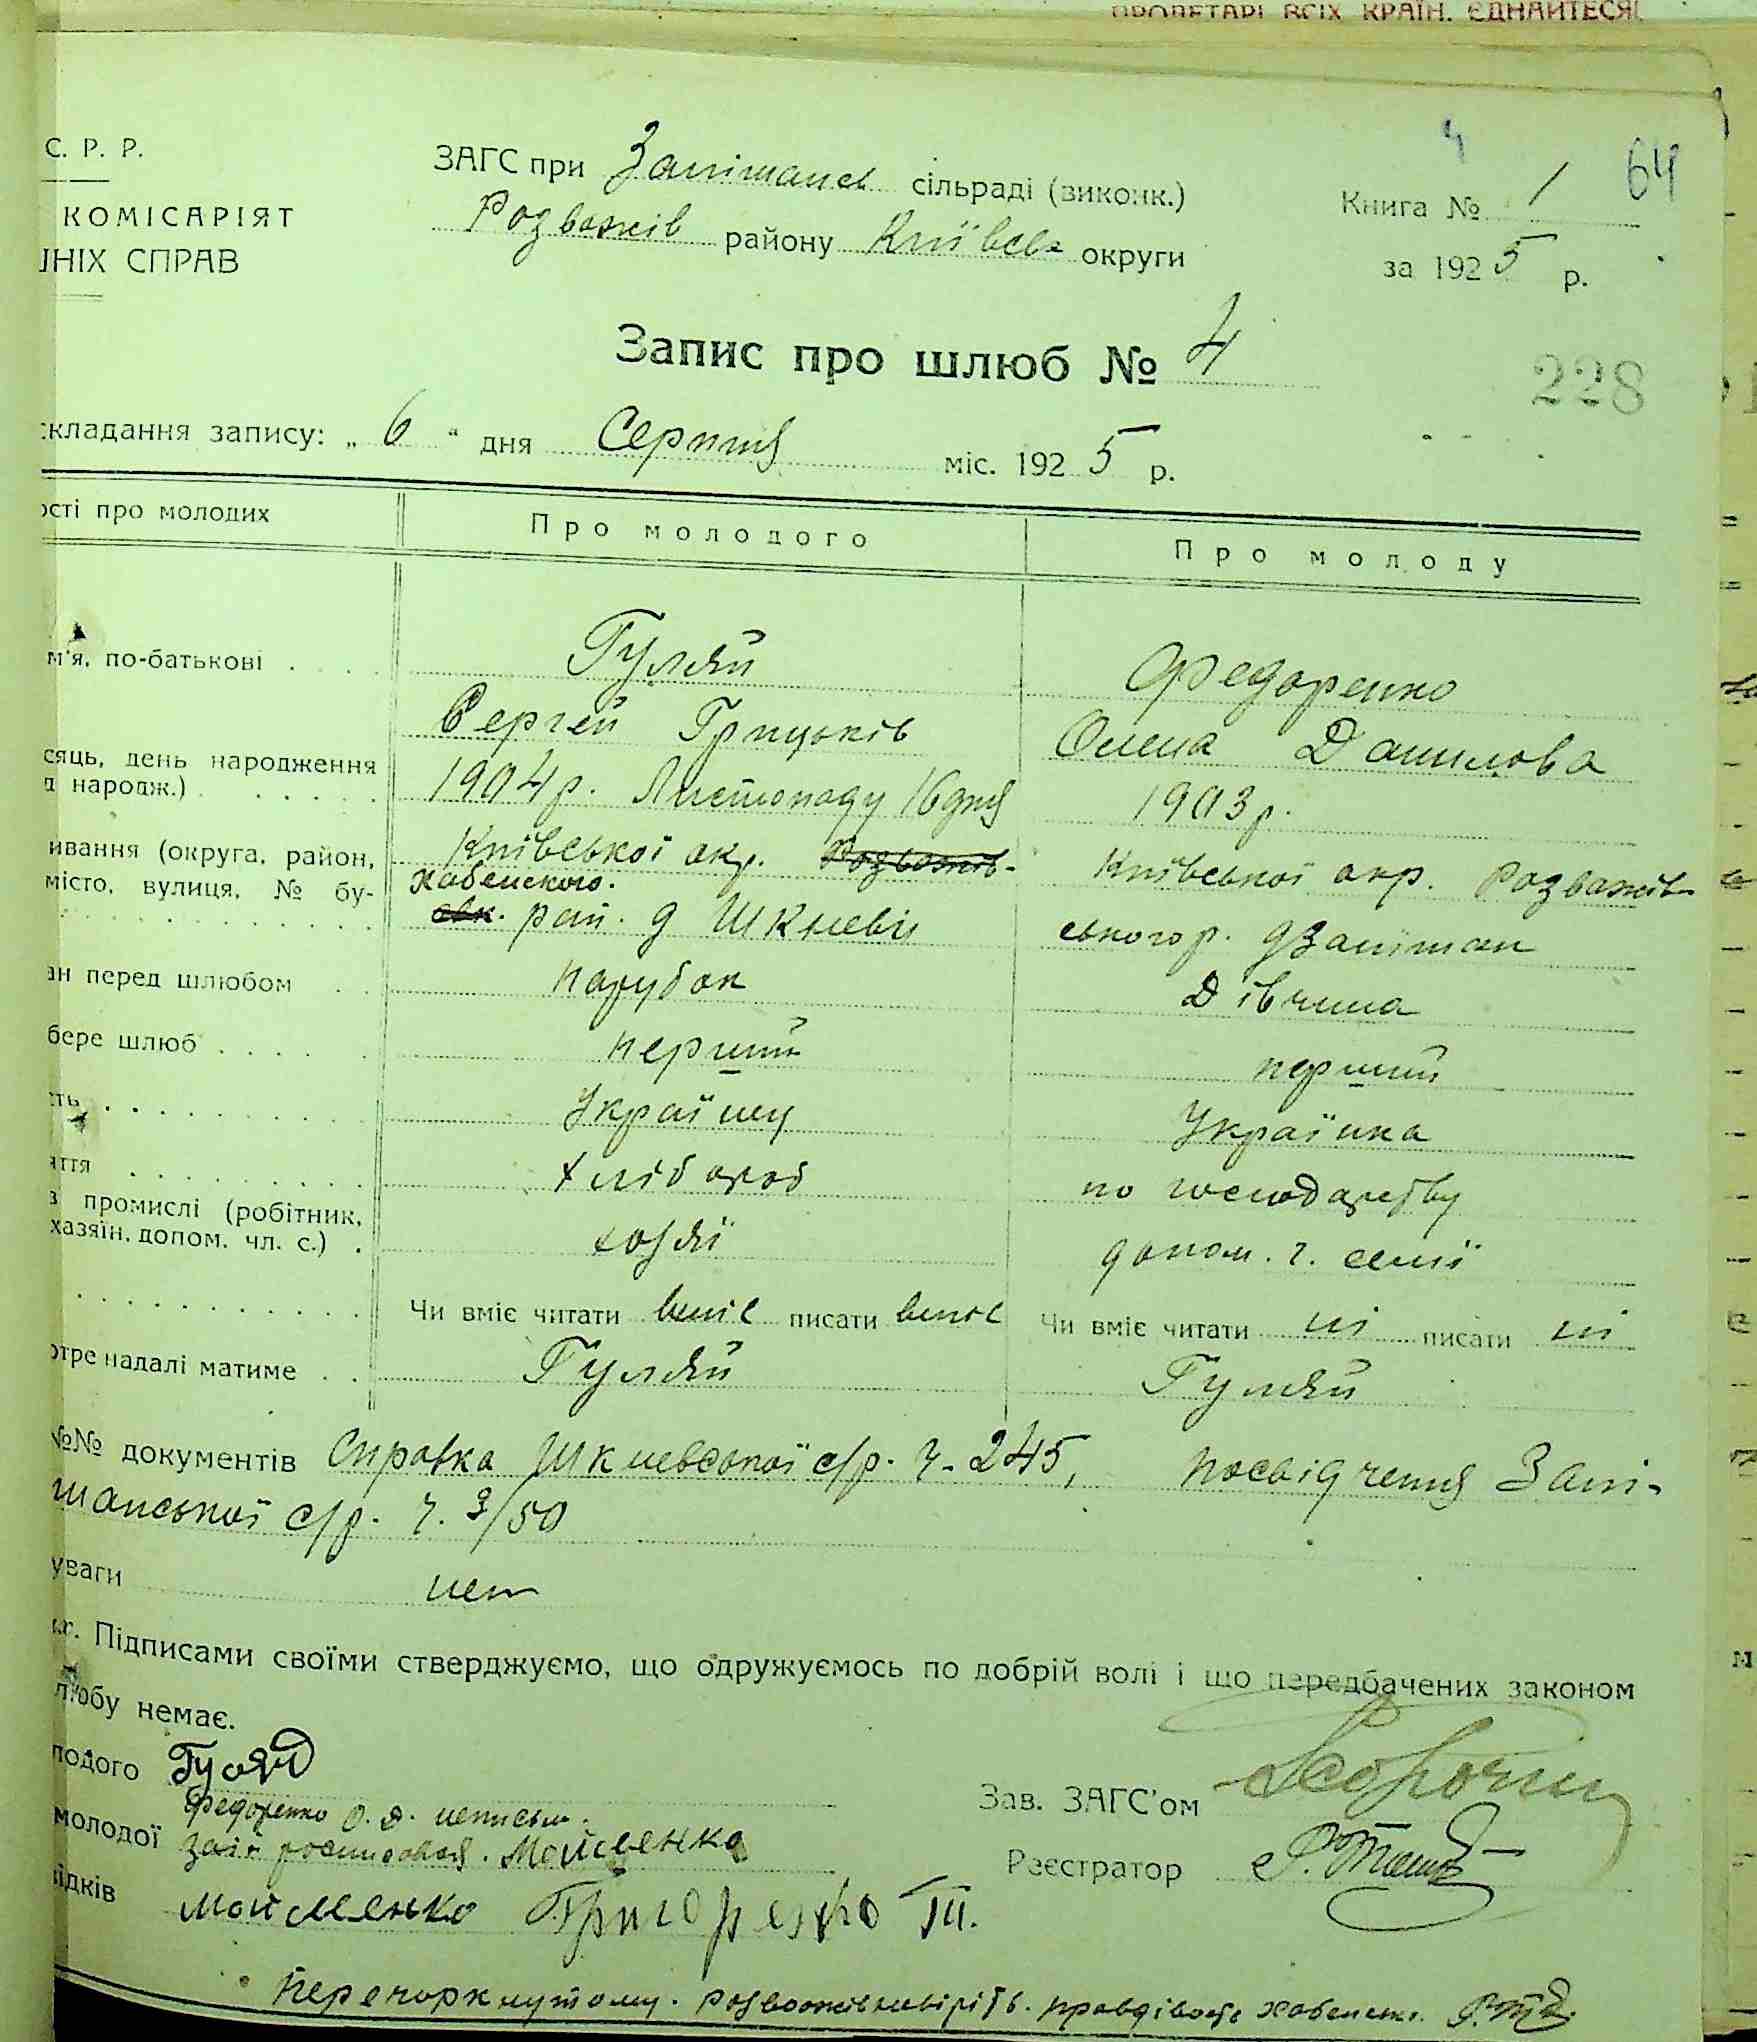 ПРОЛЕТАРІ ВСІХ КРАЇН, ЄДНАЙТЕСЯ!
4
64
С. Р. Р.
ЗАГС при Залішанск сільраді (виконк.)
Книга № 1
КОМІСАРІЯТ
Розважів району Київськ округи
за 1925 р.
ІНІХ СПРАВ
Запис про шлюб № 4
228
складання запису: „ 6 " дня Серпня міс. 1925 р.
ості про молодих
Про молодого
Про молоду
м'я, по-батькові
Гуляй
Федоренко
Сергей Грицьків
Олена Данилова
сяць, день народження
народж.)
1904 р. Листопаду 16 дня
1903 р.
ивання (округа, район,
Київської окр. Розважів-
Київської окр. Розважів-
місто, вулиця, № бу-
Хабенского.
рай. д Шкневи
ського р. д Залішан
ан перед шлюбом
парубок
Дівчина
бере шлюб
перший
перший
сть
Українц
Українка
яття
хлібороб
по господарству
в промислі (робітник,
хазяїн, допом. чл. с.)
хозяї
допом. ч. семї
Чи вміє читати вміє писати вміє
Чи вміє читати ні писати ні
отре надалі матиме
Гуляй
Гуляй
№№ документів Справка Шкневської с/р. ч. 245, посвідчення Залі-
шанської с/р. ч. 3/50
уваги нет
Підписами своїми стверджуємо, що одружуємось по добрій волі і що передбачених законом
любу немає.
лодого Гуляй
Зав. ЗАГС'ом
Федоренко О. Д. неписьм.
молодої за її росписався. Мойсеенко
Реєстратор
ідків Мойсеенко Григоренко
Перечоркнутому. Розважів невіріть. правдівость хабенськ.